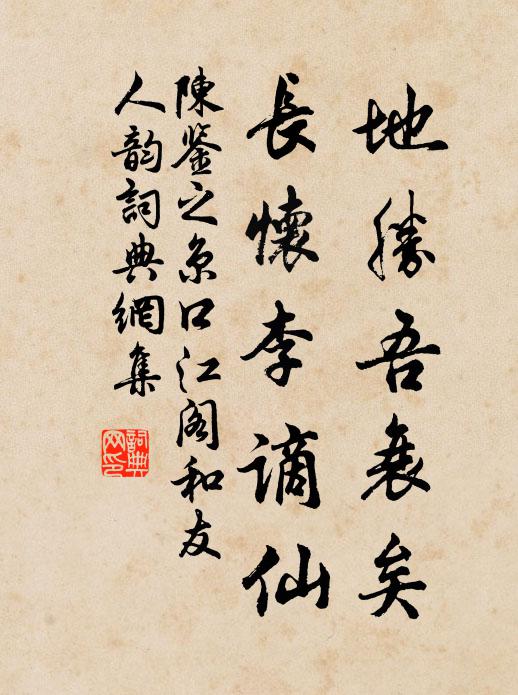 地勝吾衰矣
長懷李謫仙
陳鑒之京口江阁和友
人韵詞典網集
詞典
网印